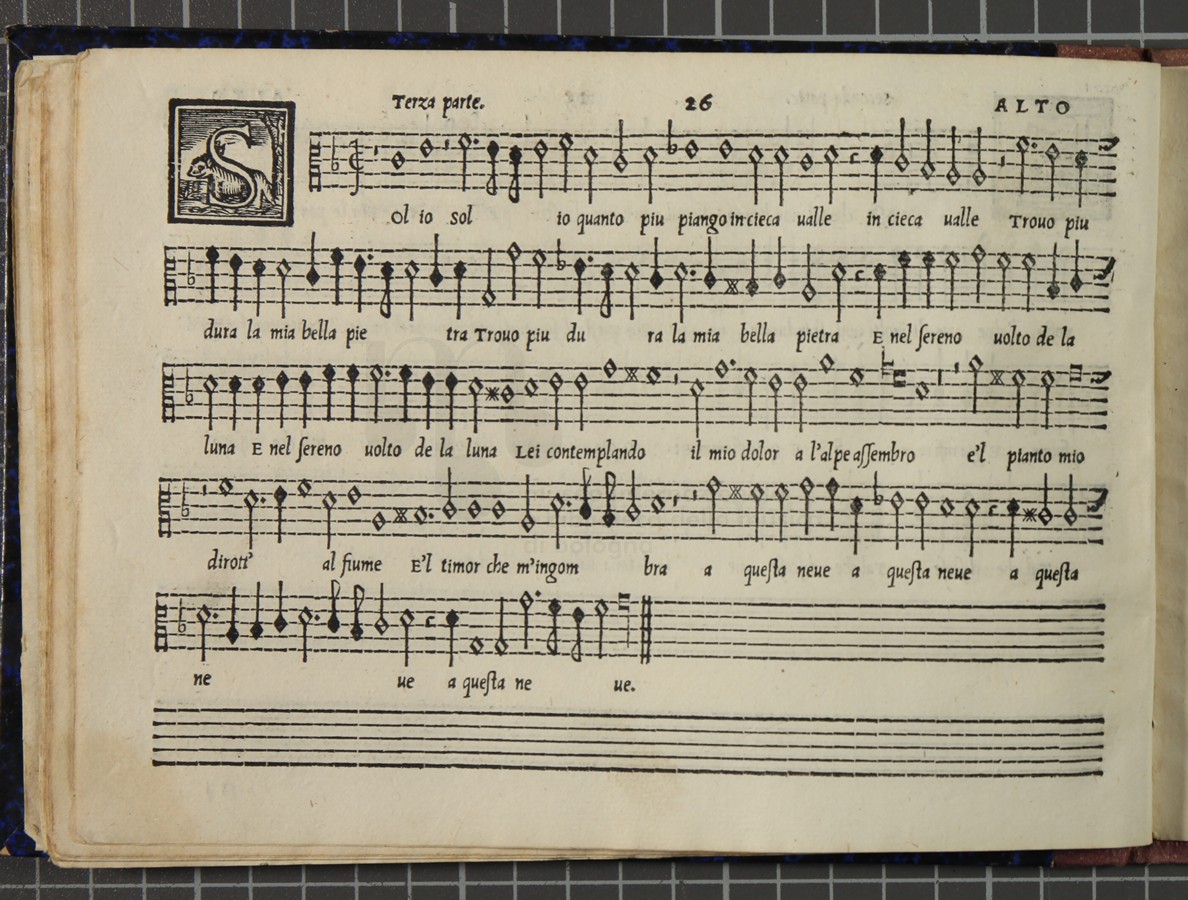 Terza parte. 26 ALTO
SOl io sol io quanto piu piango in cieca ualle in cieca ualle Trouo piu
dura la mia bella pie tra Trouo piu du ra la mia bella pietra E nel ſereno uolto de la
luna E nel ſereno uolto de la luna Lei contemplando il mio dolor a l'alpe aſſembro e'l pianto mio
dirott' al fiume E'l timor che m'ingom bra a queſta neue a queſta neue a queſta
ne ue a queſta ne ue.